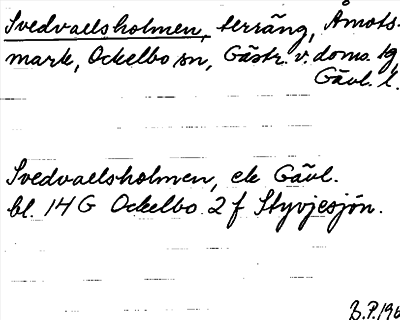 Svedvallsholmen, terräng, Åmots-
mark, Ockelbo sn, Gästr. v. doms. tg,
Gävl. l.
Svedvallsholmen, ek Gävl.
bl. 14 G Ockelbo 2 f Styvjesjön.
B.P.196